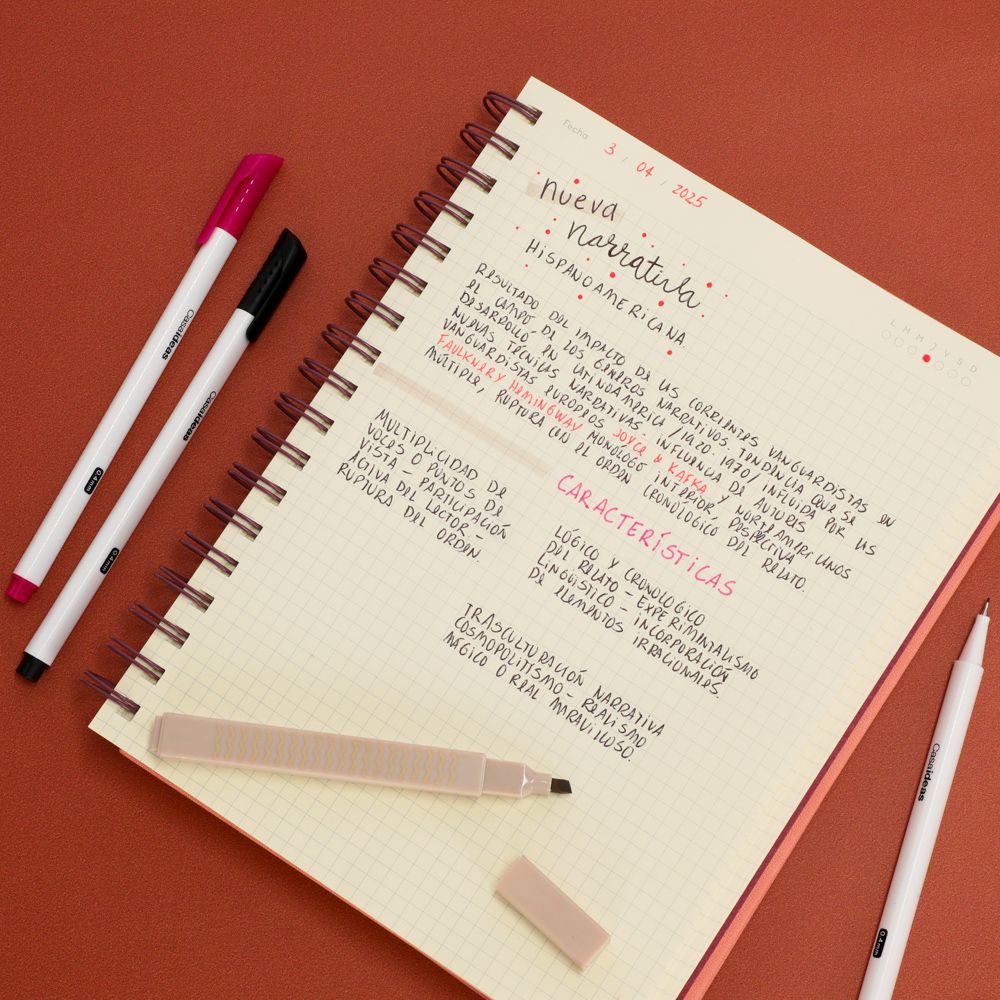 Fecha 3 / 04 / 2025
L M M J V S D
nueva
narrativa
HISPANOAMERICANA
RESULTADO DEL IMPACTO DE LAS CORRIENTES VANGUARDISTAS EN
EL CAMPO DE LOS GÉNEROS NARRATIVOS. TENDENCIA QUE SE
DESARROLLÓ EN LATINOAMERICA /1920-1970/ INFLUIDA POR LAS
NUEVAS TÉCNICAS NARRATIVAS - INFLUENCIA DE AUTORES
VANGUARDISTAS EUROPEOS JOYCE & KAFKA Y NORTEAMERICANOS
FAULKNER Y HEMINGWAY MONOLOGO INTERIOR, PERSPECTIVA
MÚLTIPLE, RUPTURA CON EL ORDEN CRONOLÓGICO DEL RELATO.
CARACTERÍSTICAS
MULTIPLICIDAD DE
VOCES O PUNTOS DE
VISTA - PARTICIPACIÓN
ACTIVA DEL LECTOR -
RUPTURA DEL ORDEN.
LÓGICO Y CRONOLOGICO
DEL RELATO - EXPERIMINTALISMO
LINGÜISTICO - INCORPORACIÓN
DE ELEMENTOS IRRACIONALES.
TRASCULTURACIÓN NARRATIVA
COSMOPOLITISMO - REALISMO
MÁGICO O REAL MARAVILLOSO.
Casaideas
0.4mm
Casaideas
0.4mm
Casaideas
0.4mm